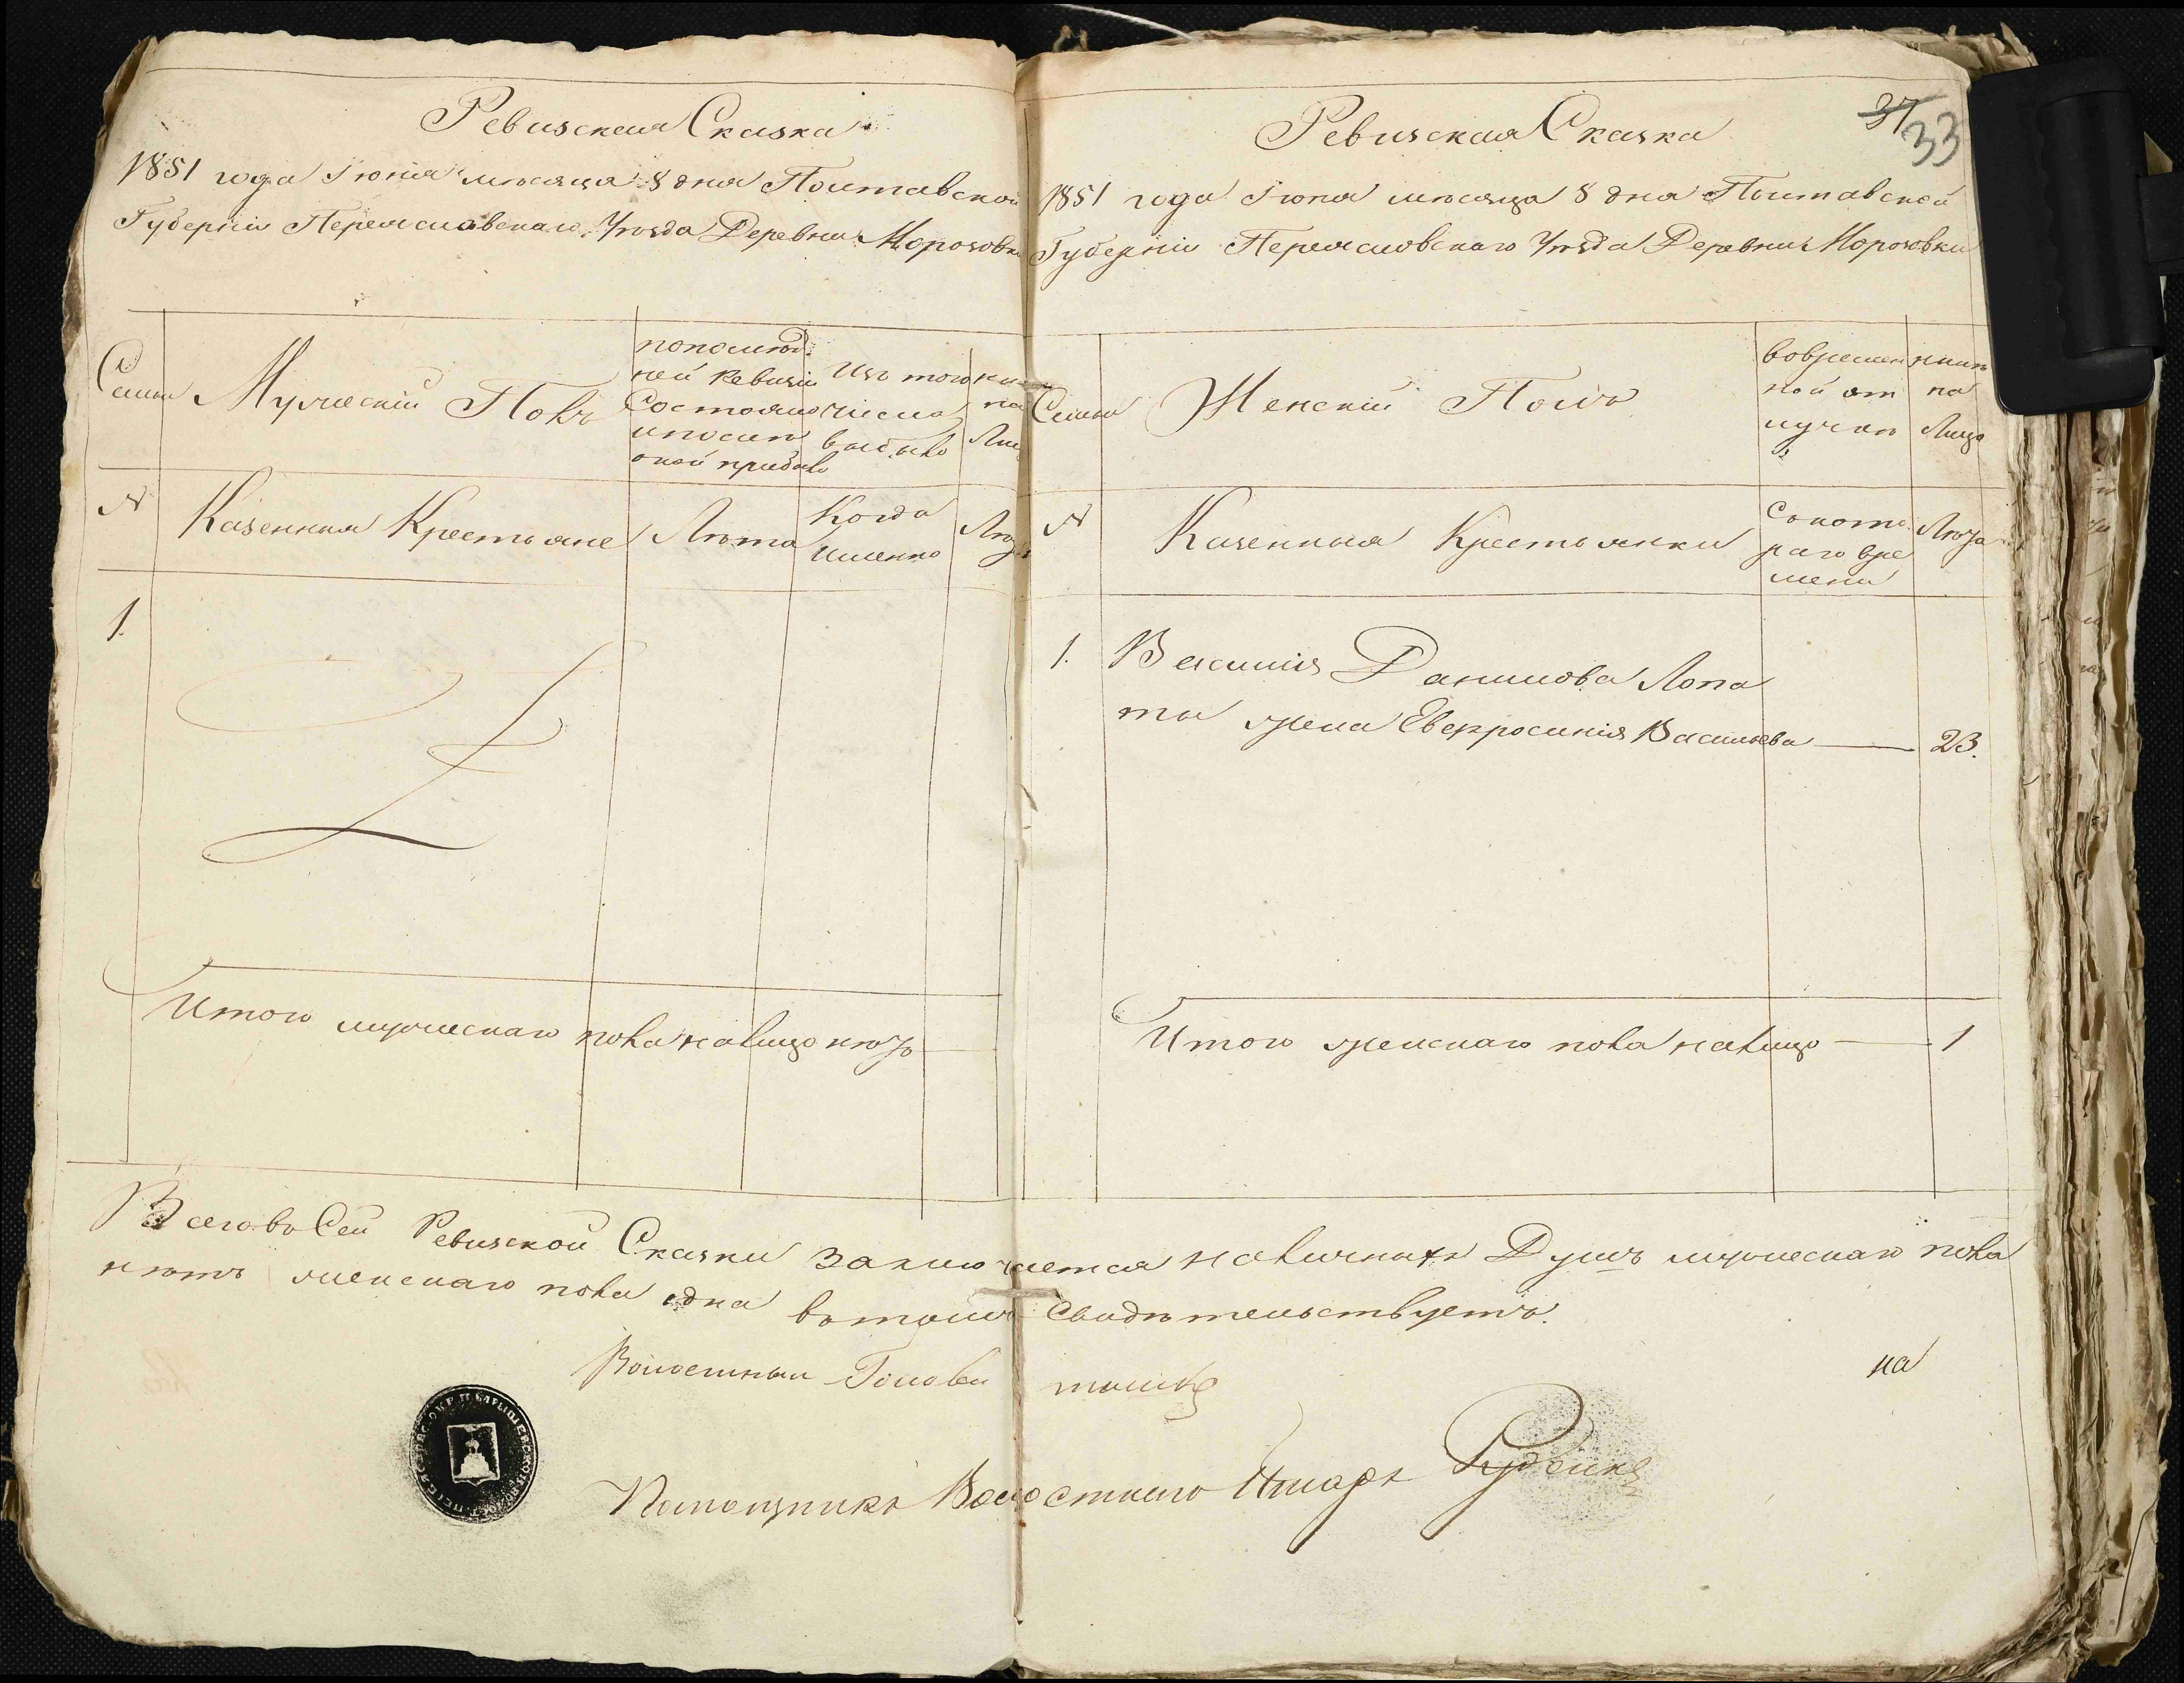 Ревизская Сказка
1851 года Іюня месяца 8 дня Полтавской
Губерніи Переяславскаго Уезда Деревни Морозовки
Семьи
Мужескій Полъ
попослед
ней Ревизіи
Состояло
ипосле
оной прибыло
Изъ того
числа
выбыло
на
N
Казенныя Крестьяне
Лета
Когда
именно
1.
Итого мужескаго пола налицо нетъ
37
33
Ревизская Сказка
1851 года Іюня месяца 8 дня Полтавской
Губерніи Переяславскаго Уезда Деревни Морозовки
Семьи
Женскій Полъ
вовремен
ной от
лучке
ныне
на
Лицо
N
Казенныя Крестьянки
Съкото
раго вре
мени
Лета
1.
Данилова Лопа
ты жена Евфросинія Васильева — 23.
Итого женскаго пола налицо — 1
Всего въ Сей Ревизской Сказки заключается наличныхъ Душъ мужескаго пола
нетъ женскаго пола одна въ томъ свидетельствуетъ.
Волостный Голова
на
Помощникъ Волостнаго Писаря Руденко